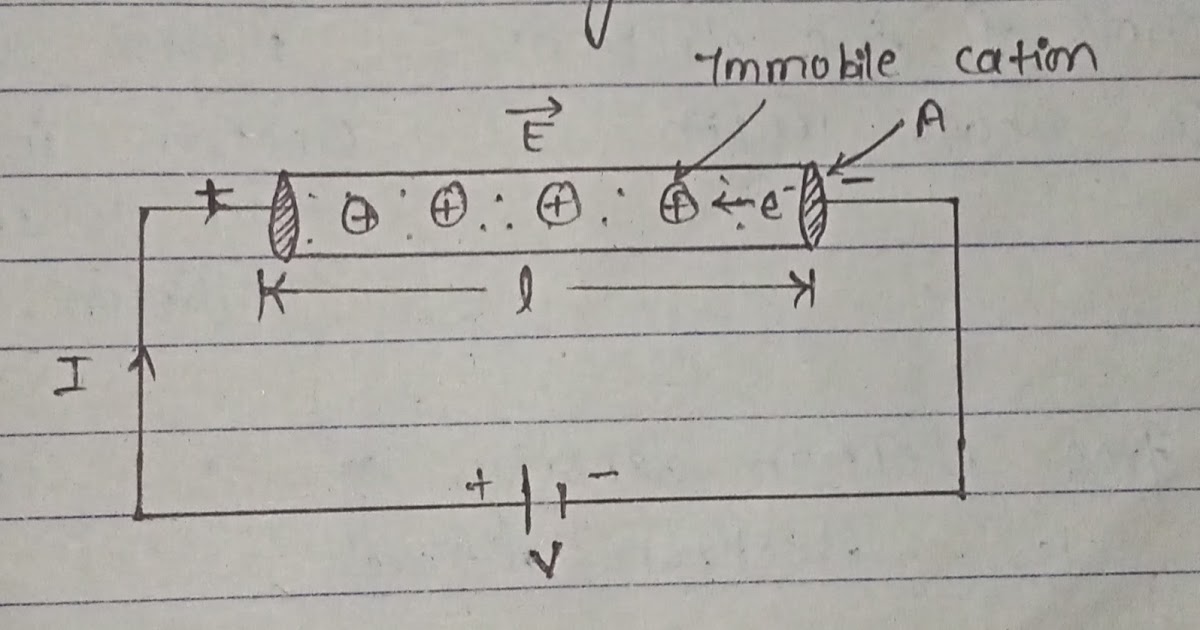 Immobile cation
E
A
+ -
e-
l
I
+ -
V